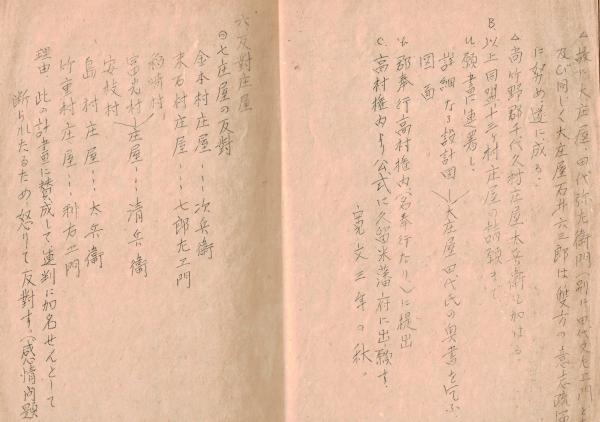 △ 大庄屋 田代弥左衛門(別ニ田代又左エ門と
及び同じく大庄屋石井六三郎は双方の意志疏通
に努め遂に成る。
△ 尚竹野郡千代久村庄屋太兵衛も加はる
B. 以上同盟十三村庄屋の誓願きて
い、願書に連署し
詳細なる設計図
図面 大庄屋田代氏の奥書を乞ふ
ろ、郡奉行高村権内(名奉行なり)に提出
C. 高村権内より公式に久留米藩府に出願す。
寛文三年の秋。
六 反對庄屋
七庄屋の反対
金本村庄屋…次兵衛
末石村庄屋…七郎左エ門
稲崎村
富光村 庄屋…清兵衛
安枝村
島村庄屋…太兵衛
竹重村庄屋…利右エ門
理由 此の計畫に賛成して連判に加名せんとして
断られたるため怒りて反對す。(感情問題